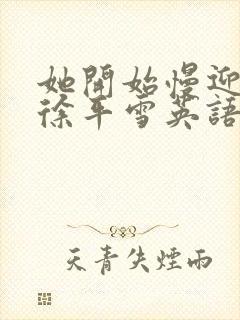 她開始慢迎
徐平雪英語
天青失煙雨